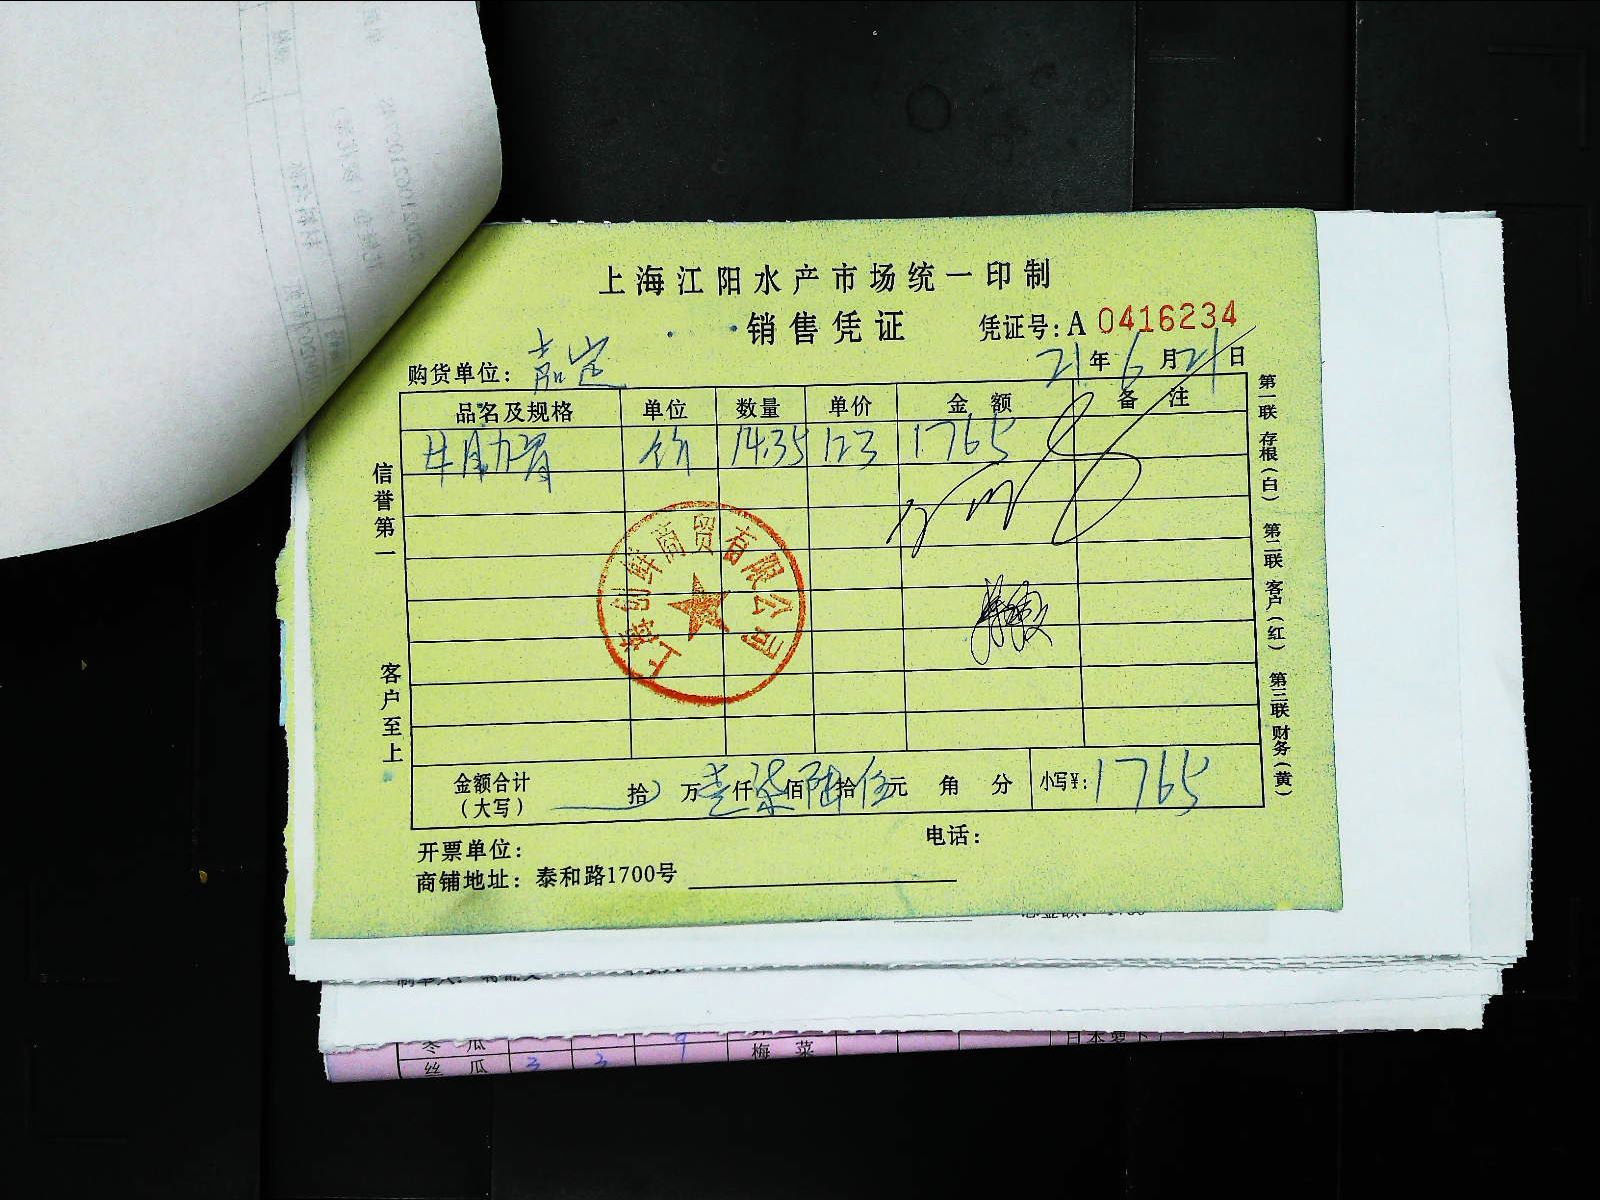 上海江阳水产市场统一印制
销售凭证 凭证号:A 0416234
购货单位: 嘉定 21年6月21日
品名及规格 单位 数量 单价 金额 备注
牛肋骨 14.35 123 1765
上海创鲜商贸有限公司
信誉第一 客户至上
第一联 存根(白) 第二联 客户(红) 第三联 财务(黄)
金额合计(大写) 拾 万壹仟柒佰陆拾伍元 角 分 小写¥: 1765
开票单位: 电话:
商铺地址: 泰和路1700号
丝瓜 3 3 梅菜